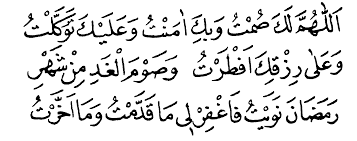 اَللّٰهُمَّ لَكَ صُمْتُ وَبِكَ اٰمَنْتُ وَعَلَيْكَ تَوَكَّلْتُ
وَعَلٰى رِزْقِكَ اَفْطَرْتُ وَصَوْمَ الْغَدِ مِنْ شَهْرِ
رَمَضَانَ نَوَيْتُ فَاغْفِرْ لِى مَا قَدَّمْتُ وَمَا اَخَّرْتُ